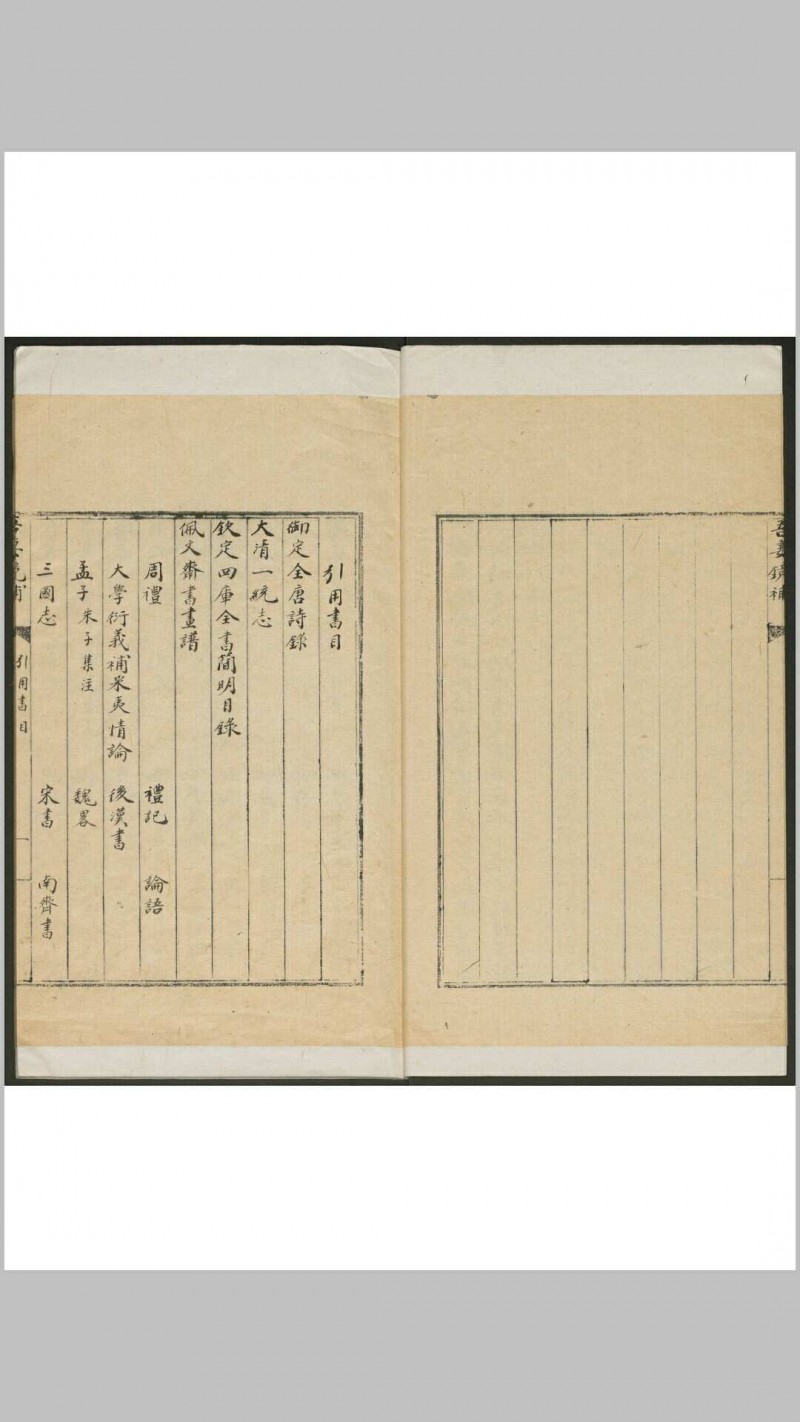 吾妻鏡補
引用書目
御定全唐詩錄
大清一統志
欽定四庫全書簡明目錄
佩文齋書畫譜
周禮 禮記 論語
大學衍義補 米夷情論 後漢書
孟子朱子集注 魏畧
三國志 宋書 南齊書
吾妻鏡補 引用書目